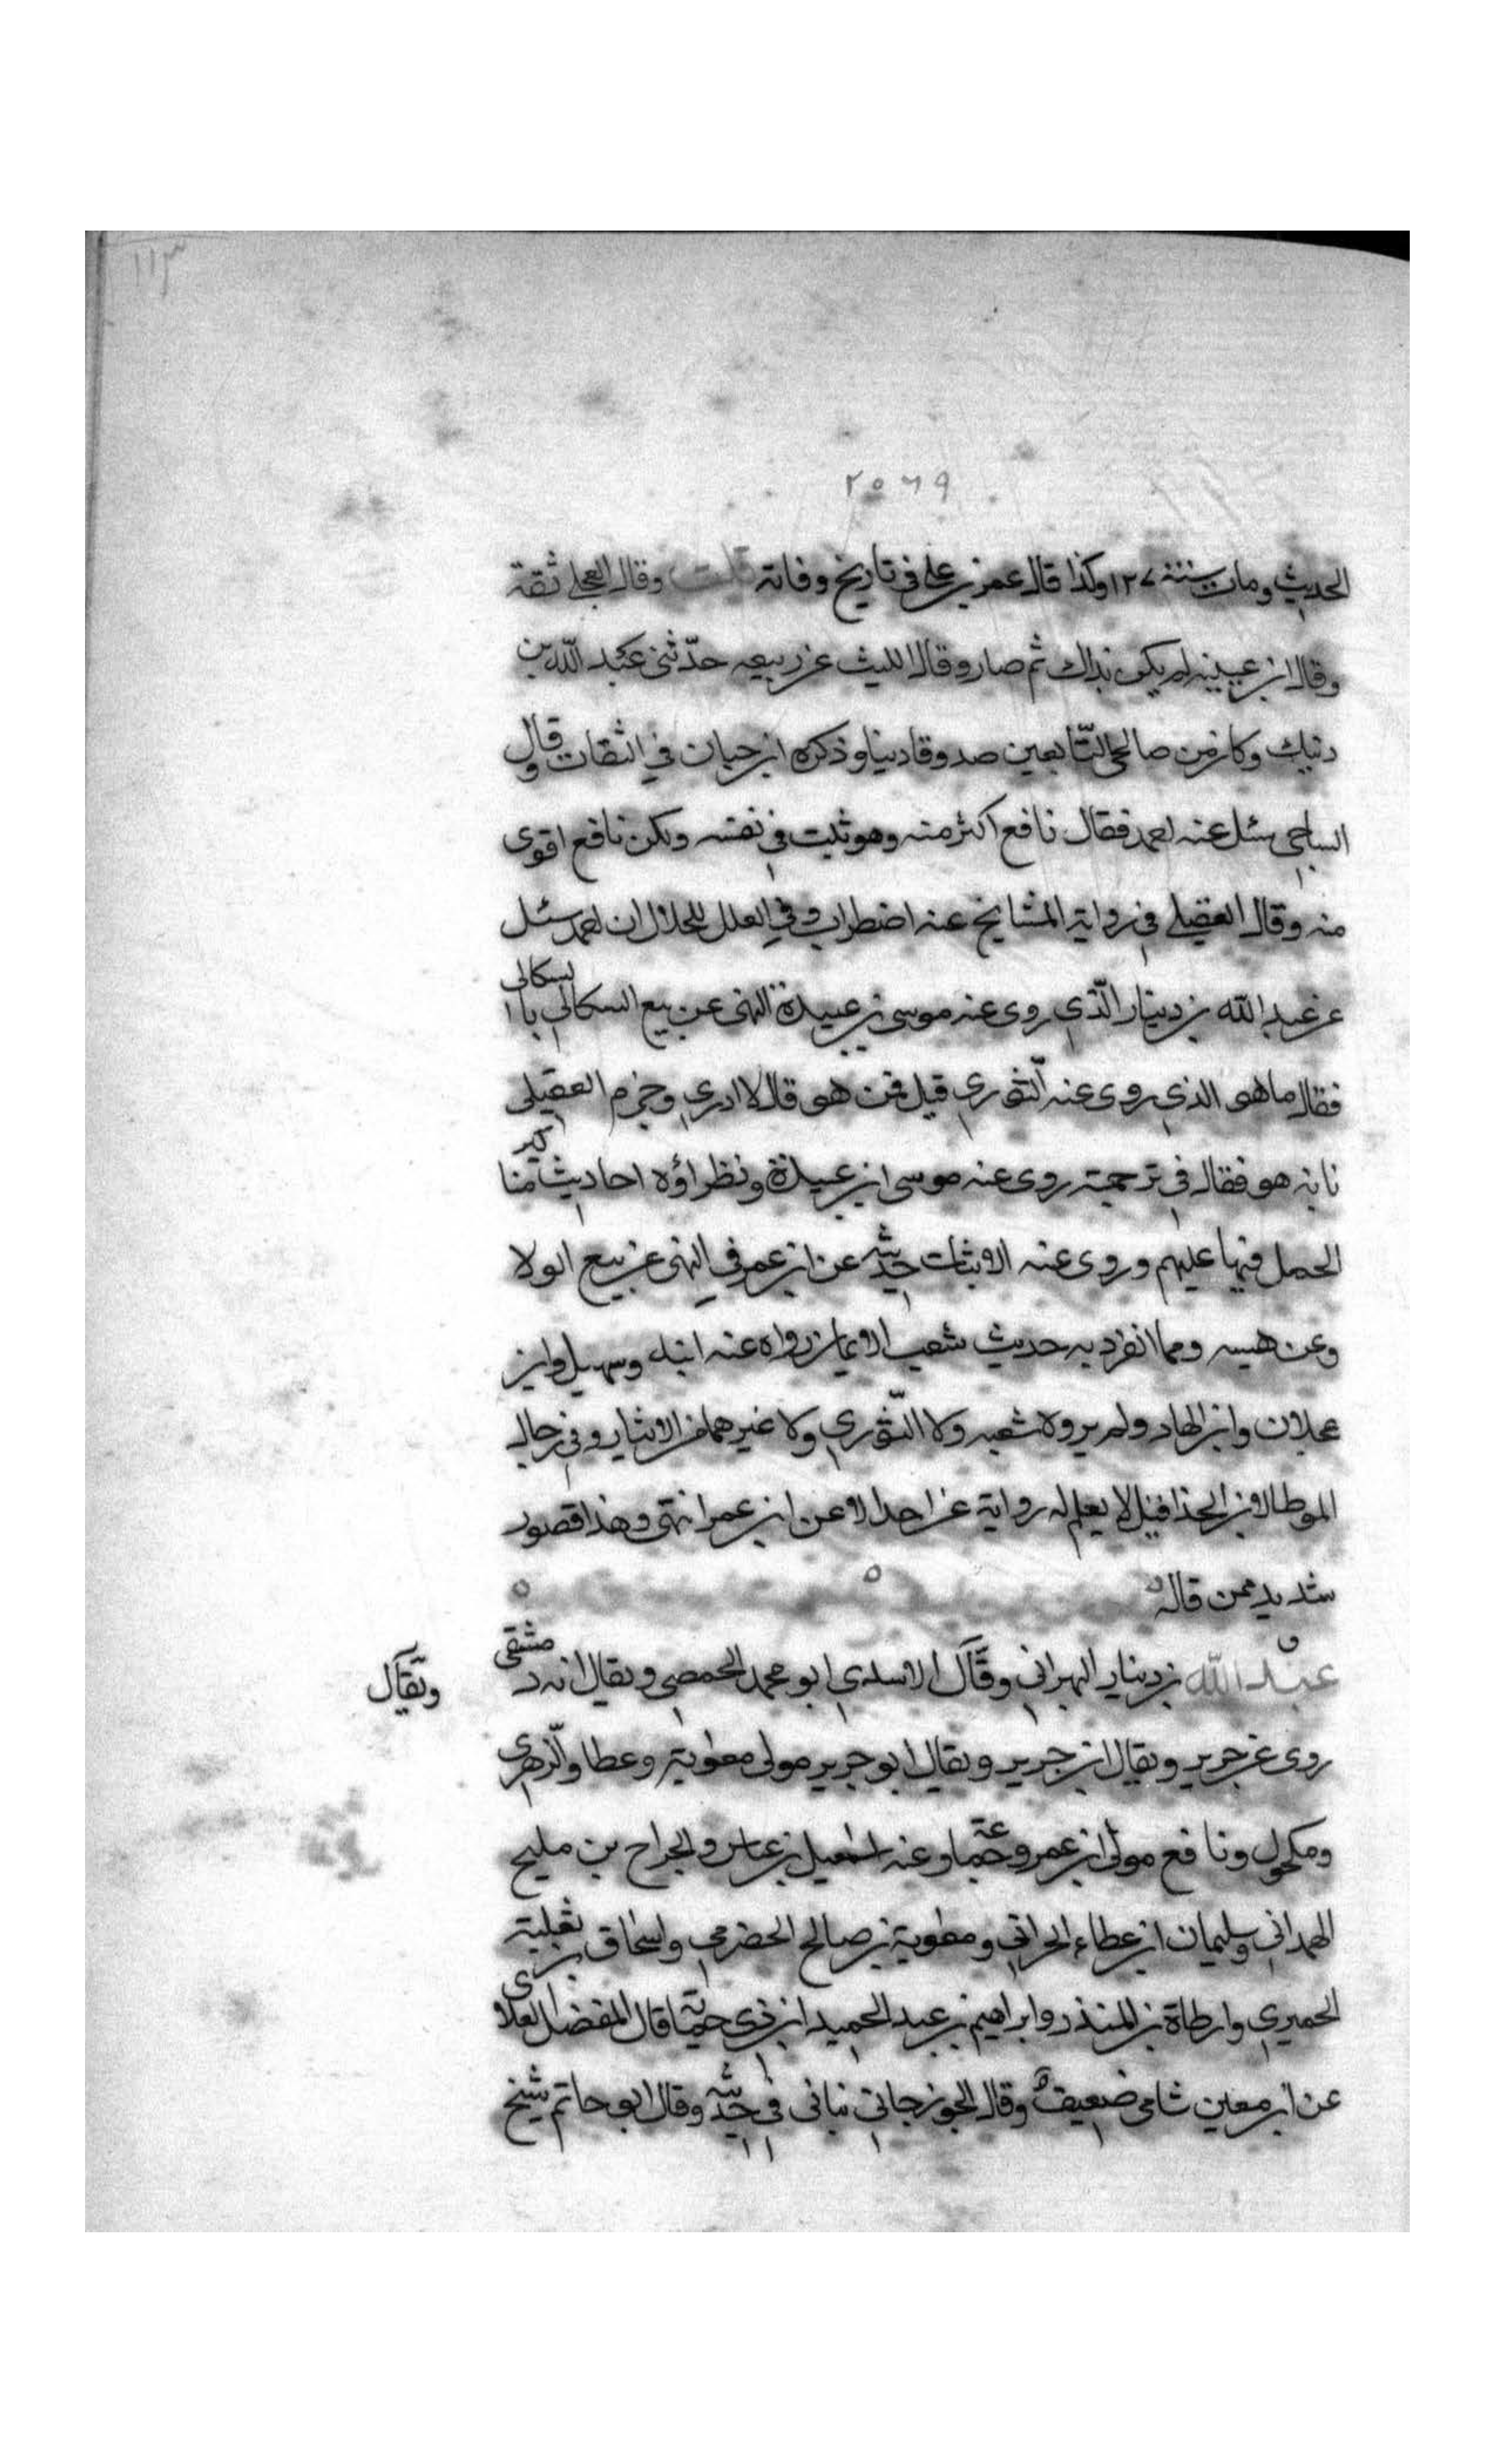 ١١٣
٢٥٦٩
الحديث ومات سنة ١٢٧ وكذا قال عمرو بن علي في تاريخ وفاته قلت وقال العجلي ثقة
وقال ابن عيينه لم يكن بذاك ثم صار وقال الليث عن ربيعه حدّثني عبد اللّه بن
دنيك وكان من صالحي التّابعين صدوقا دينا وذكره ابن حبان في الثقات وقال
الساجي سئل عنه احمد فقال نافع اكثر منه وهو ثبت في نفسه ولكن نافع اقوى
منه وقال العقيلي في رواية المشايخ عنه اضطراب وفي العلل للخلال ان احمد سئل
عن عبد اللّه بن دينار الّذي روى عنه موسى بن عبيدة النهى عن بيع السكالي بالسكالى
فقال ما هو الذي روى عنه الثّوري قيل فمن هو قال لا ادري وجزم العقيلى
نانه هو فقال في ترجمته روى عنه موسى ابن عبيدة ونظراؤه احاديث مناكير
الحمل فيها عليهم وروى عنه الاثبات حديثه عن ابن عمر في النهى عن بيع الولا
وعن هبسه ومما انفرد به حديث شعب الايمان رواه عنه ابنه وسهيل وابن
عجلان وابن الهاد ولم يروه شعبه ولا الثّوري ولا غيرهما من الاثبار وفي رجال
الموطا لابن الحذا قيل لا يعلم له رواية عن احد الا عن ابن عمر انتهى وهذا قصور
شديد ممن قاله
ق
عبد اللّه بن دينار البهراني وقال الاسدي ابو محمد الحمصي ويقال انه دمشقى
ويقال
روى عن جرير ويقال ابن جرير ويقال ابو جرير مولى معوية وعطا والزهري
ومكحول ونافع مولى ابن عمر وجماعة وعنه اسمعيل بن عياش والجراح بن مليح
الهمداني وسليمان ابن عطاء الحراني ومعوية بن صالح الحضرمي واسحاق بن ثعلبة
الحميري وارطاة بن المنذر وابراهيم بن عبد الحميد ابن ذي حماية قال المفضل العلائى
عن ابن معين شامى ضعيف وقال الجوزجاني نباني في حديثه وقال ابو حاتم شيخ